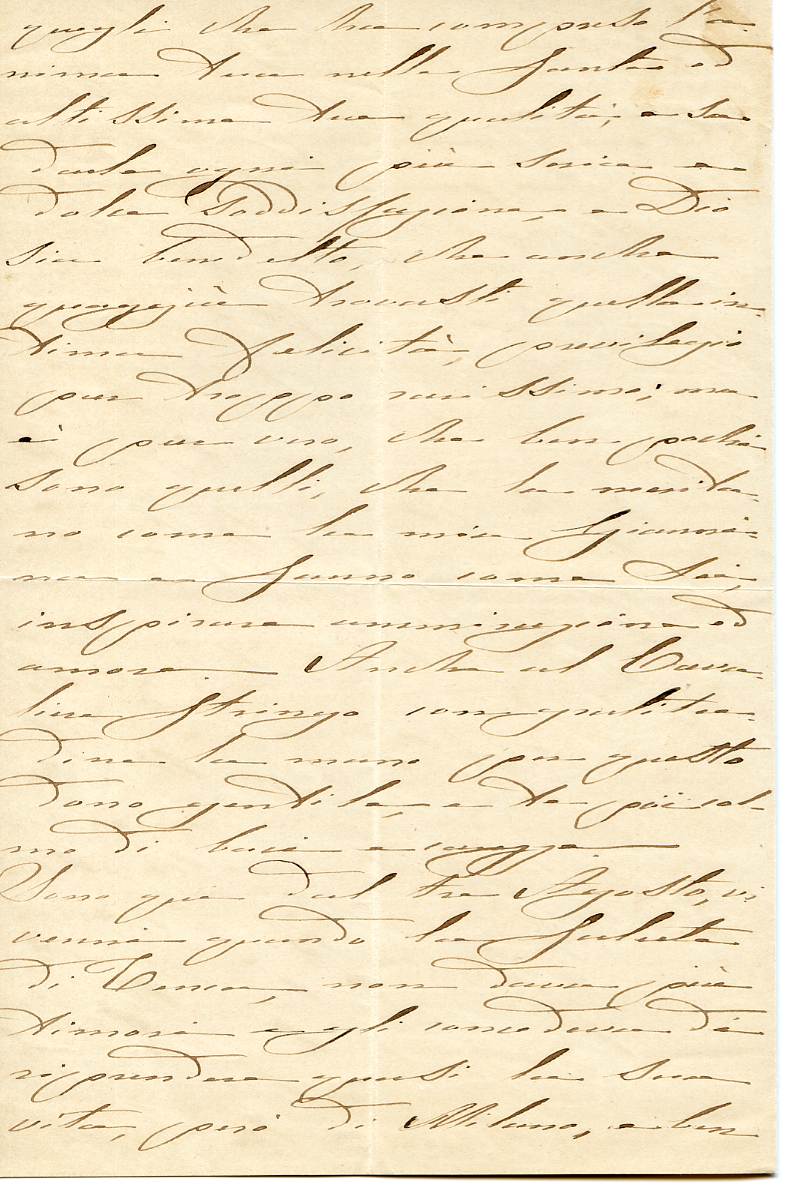 quegli che ha compreso l'a-
nima tua nelle sante ed
altissime tue qualità, e sa
darle ogni più seria e
dolce soddisfazione, e Dio
sia benedetto, che anche
quaggiù trovasti quella in-
tima felicità, previlegio
pur troppo rarissimo; ma
è pur vero, che ben pochi
sono quelli, che la merita-
no come la mia Gianni-
na e sanno come Lei,
inspirare ammirazione ed
amore. Anche al Cava-
liere stringo con gratitu-
dine la mano per questo
dono gentile, e te poi col-
mo di baci e carezze
Sono qui dal tre Agosto, vi
venni quando la salute
di Cenca, non dava più
timori e gli concedeva di
riprendere quasi la sua
vita, però di Milano, e ben